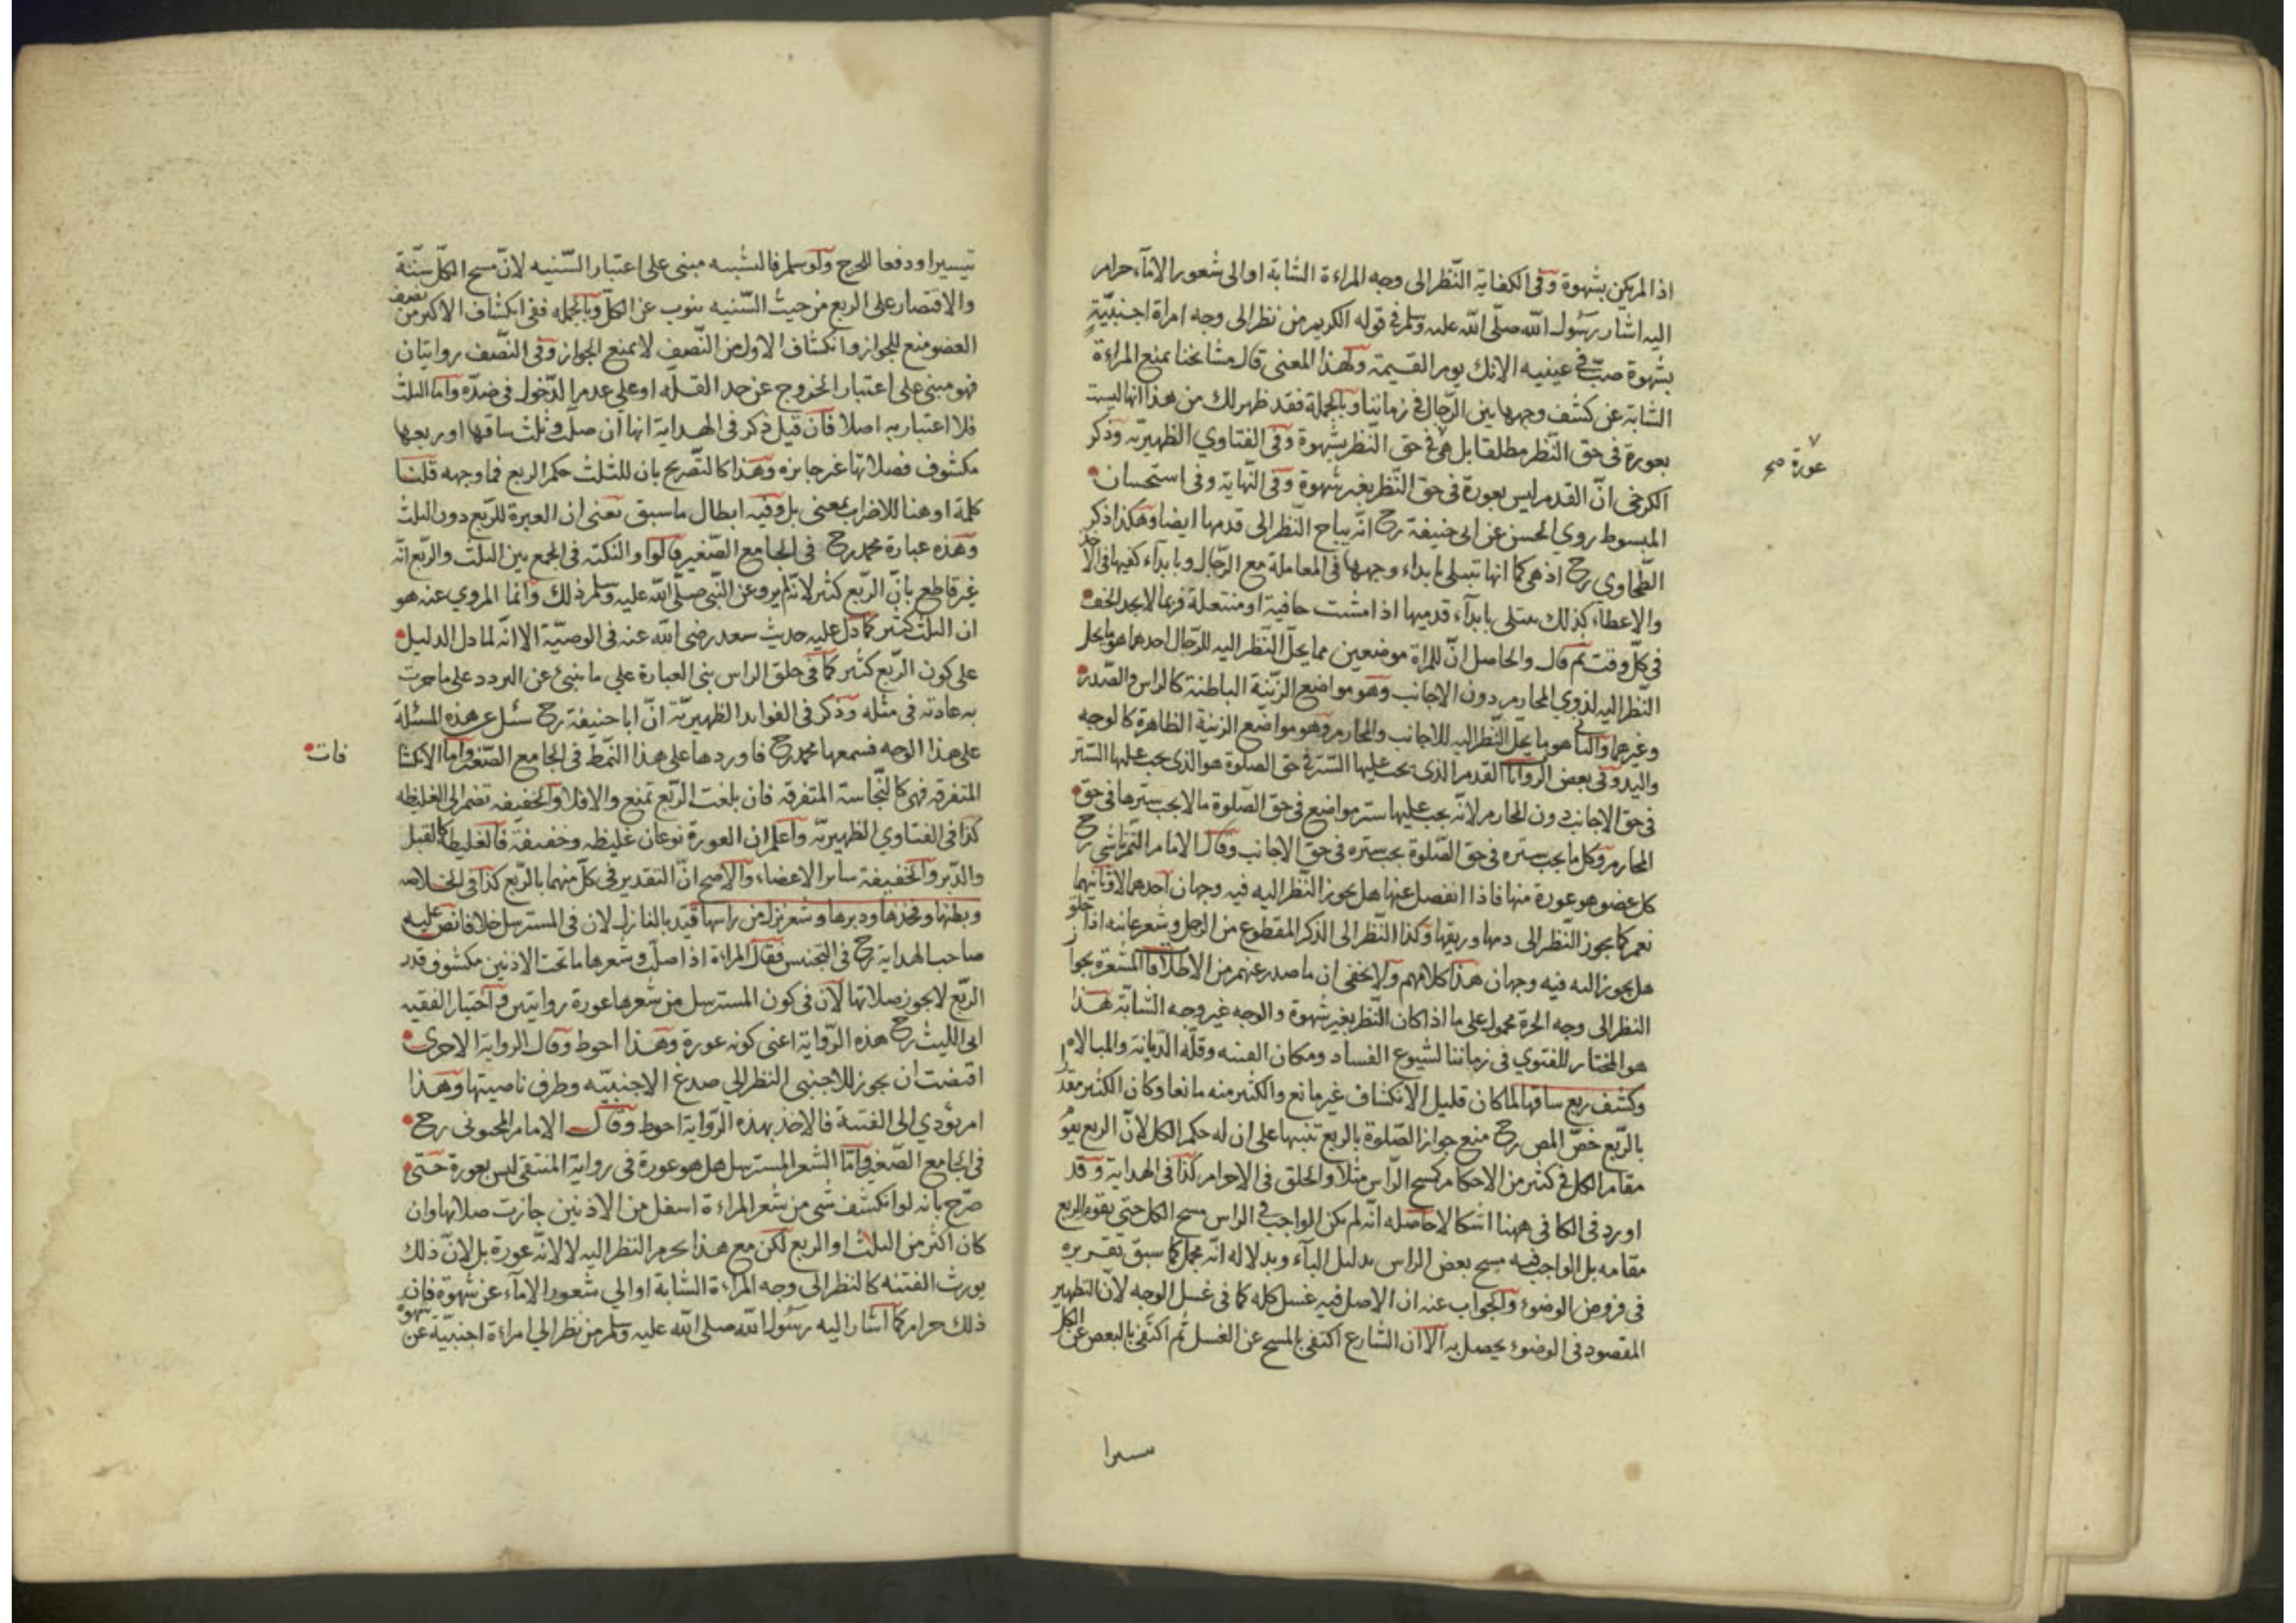 اذا لم يكن بشهوة وفى الكفاية النّظر الى وجه المراءة الشابة او الى شعور الامآء حرام
اليه اشار رسول الله صلّى الله عليه وسلم فى قوله الكريم من نظر الى وجه امراة اجنبيّة
بشهوة صبّ فى عينيه الانك يوم القيمة ولهذا المعنى قال مشائخنا يمنع المراءة
الشابة عن كشف وجهها بين الرّجال فى زماننا وبالجملة فقد ظهر لك من هذا انها ليست
بعورة فى حق النّظر مطلقا بل هى فى حق النّظر بشهوة وفى الفتاوي الظهيريّه وذكر
عورة صح
الكرخى انّ القدم ليس بعورة فى حق النّظر بغير شهوة وفى النّهاية وفى استحسان
المبسوط روي الحسن عن ابى حنيفة رح انّه يباح النّظر الى قدمها ايضا وهكذا ذكر
الطّحاوي رح اذ هى كما انها تبتلى بابداء وجهها فى المعاملة مع الرّجال وبابدآء كفيها فى الاخذ
والاعطاء كذلك تبتلى بابدآء قدميها اذا مشت حافية او منتعلة فربما لا يجد الخف
فى كلّ وقت ثم قال والحاصل انّ للمراة موضعين مما يحلّ النّظر اليه للرّجال احدهما هو ما يحل
النّظر اليه لذوي المحارم دون الاجانب وهو مواضع الزّينة الباطنة كالراس والصّدر
وغيرهما والثانى هو ما يحلّ النّظر اليه للاجانب والمحارم وهو مواضع الزينة الظاهرة كالوجه
واليد وفى بعض الروايات القدم الذى يجب عليها السّتر فى حق الصلوة هو الذى يجب عليها الستر
فى حق الاجانب دون المحارم لانّه يجب عليها ستر مواضع فى حق الصّلوة ما لا يجب سترها فى حق
المحارم وكل ما يجب ستره فى حق الصّلوة يجب ستره فى حق الاجانب وقال الامام التمرتاشى رح
كل عضو هو عورة منها فاذا انفصل عنها هل يجوز النّظر اليه فيه وجهان احدهما لا وثانيهما
نعم كما يجوز النّظر الى دمها وريقها وكذا النّظر الى الذكر المقطوع من الرجل وشعر عانته اذا حلق
هل يجوز اليه فيه وجهان هذا كلامهم ولا يخفى ان ما صدر عنهم من الاطلاقات المشعرة بجواز
النظر الى وجه الحرة محمول على ما اذا كان النّظر بغير شهوة والوجه غير وجه الشابّة هذا
هو المختار للفتوي فى زماننا لشيوع الفساد ومكان الفتنه وقلّة الدّيانة والمبالاة
وكشف ربع ساقها لما كان قليل الانكشاف غير مانع والكثير منه مانعا وكان الكثير مقدرا
بالرّبع خصّ المص رح منع جواز الصّلوة بالربع تنبيها على ان له حكم الكل لانّ الربع يقوم
مقام الكل فى كثير من الاحكام كمسح الرّاس مثلا والحلق فى الاحرام كذا فى الهداية وقد
اورد فى الكافى ههنا اشكالا حاصله انّه لم يكن الواجب فى الراس مسح الكل حتى يقوم الربع
مقامه بل الواجب فيه مسح بعض الراس بدليل البآء وبدلاله انّه مجمل كما سبق تقريره
فى فروض الوضوء والجواب عنه ان الاصل فيه غسل كله كما فى غسل الوجه لانّ التطهير
المقصود فى الوضوء يحصل به الا ان الشارع اكتفى بالمسح عن الغسل ثم اكتفى بالبعض عن الكل
تيسيرا ودفعا للحرج ولو سلم فالشبه مبنى على اعتبار السّنيه لانّ مسح الكلّ سنّة
والاقتصار على الربع من حيث السّنيه ينوب عن الكلّ وبالجمله ففى انكشاف الاكثر من نصف
العضو منع للجواز وانكشاف الاول من النّصف لا يمنع الجواز وفى النّصف روايتان
فهو مبنى على اعتبار الخروج عن حد القلّه او على عدم الدّخول فى ضدّه واما الثلث
فلا اعتبار به اصلا فان قيل ذكر فى الهداية انها ان صلّت وثلث ساقها او ربعها
مكشوف فصلاتها غير جايزه وهذا كالتّصريح بان للثلث حكم الربع فما وجهه قلنا
كلمة او هنا للاضراب بمعنى بل وفيه ابطال ما سبق يعنى ان العبرة للرّبع دون الثلث
وهذه عبارة محمد رح فى الجامع الصّغير قالوا والنكته فى الجمع بين الثلث والرّبع انّه
غير قاطع بانّ الرّبع كثير لانّه لم يرو عن النّبى صلّى الله عليه وسلم ذلك وانّما المروي عنه هو
ان الثلث كثير كما دلّ عليه حديث سعد رضى الله عنه فى الوصيّة الا انّه لما دل الدليل
على كون الرّبع كثير كما فى حلق الراس بنى العبارة على ما ينبئ عن التردد على ما جرت
به عادته فى مثله وذكر فى الفوايد الظهيريّة انّ ابا حنيفة رح سئل عن هذه المسئلة
على هذا الوجه فسمعها محمد رح فاوردها على هذا النّمط فى الجامع الصّغير واما الانكشا
فات
المتفرقه فهو كالنّجاسة المتفرقه فان بلغت الرّبع تمنع والا فلا والخفيفه تضم الى الغليظه
كذا فى الفتاوي الظهيريّه واعلم ان العورة نوعان غليظه وخفيفة فالغليظة كالقبل
والدّبر والخفيفة ساير الاعضاء والاصح انّ التقدير فى كلّ منهما بالرّبع كذا فى الخلاصه
وبطنها وفخذها ودبرها وشعر نزل من راسها قيّد بالنازل لان فى المسترسل خلافا نصّ عليه
صاحب الهداية رح فى التجنيس فقال المراءة اذا صلّت وشعرها ما تحت الاذنين مكشوف قدر
الرّبع لا يجوز صلاتها لان فى كون المسترسل من شعرها عورة روايتين واختيار الفقيه
ابى الليث رح هذه الرّواية اعنى كونه عورة وهذا احوط وقال الرواية الاخرى
اقتضت ان يجوز للاجنبى النظر الى صدغ الاجنبيّه وطرف ناصيتها وهذا
امر يؤدي الى الفتنة فالاخذ بهذه الرّواية احوط وقال الامام المحبوبى رح
فى الجامع الصّغير وامّا الشعر المسترسل هل هو عورة فى رواية المنتقى ليس بعورة حتى
صرّح بانه لو انكشف شى من شعر المراءة اسفل من الاذنين جازت صلاتها وان
كان اكثر من الثلث او الربع لكن مع هذا يحرم النظر اليه لا لانّه عورة بل لانّ ذلك
يورث الفتنه كالنظر الى وجه المراءة الشابة او الى شعور الامآء عن شهوة فان
ذلك حرام كما اشار اليه رسول الله صلى الله عليه وسلم من نظر الى امراءة اجنبيّة عن شهوة